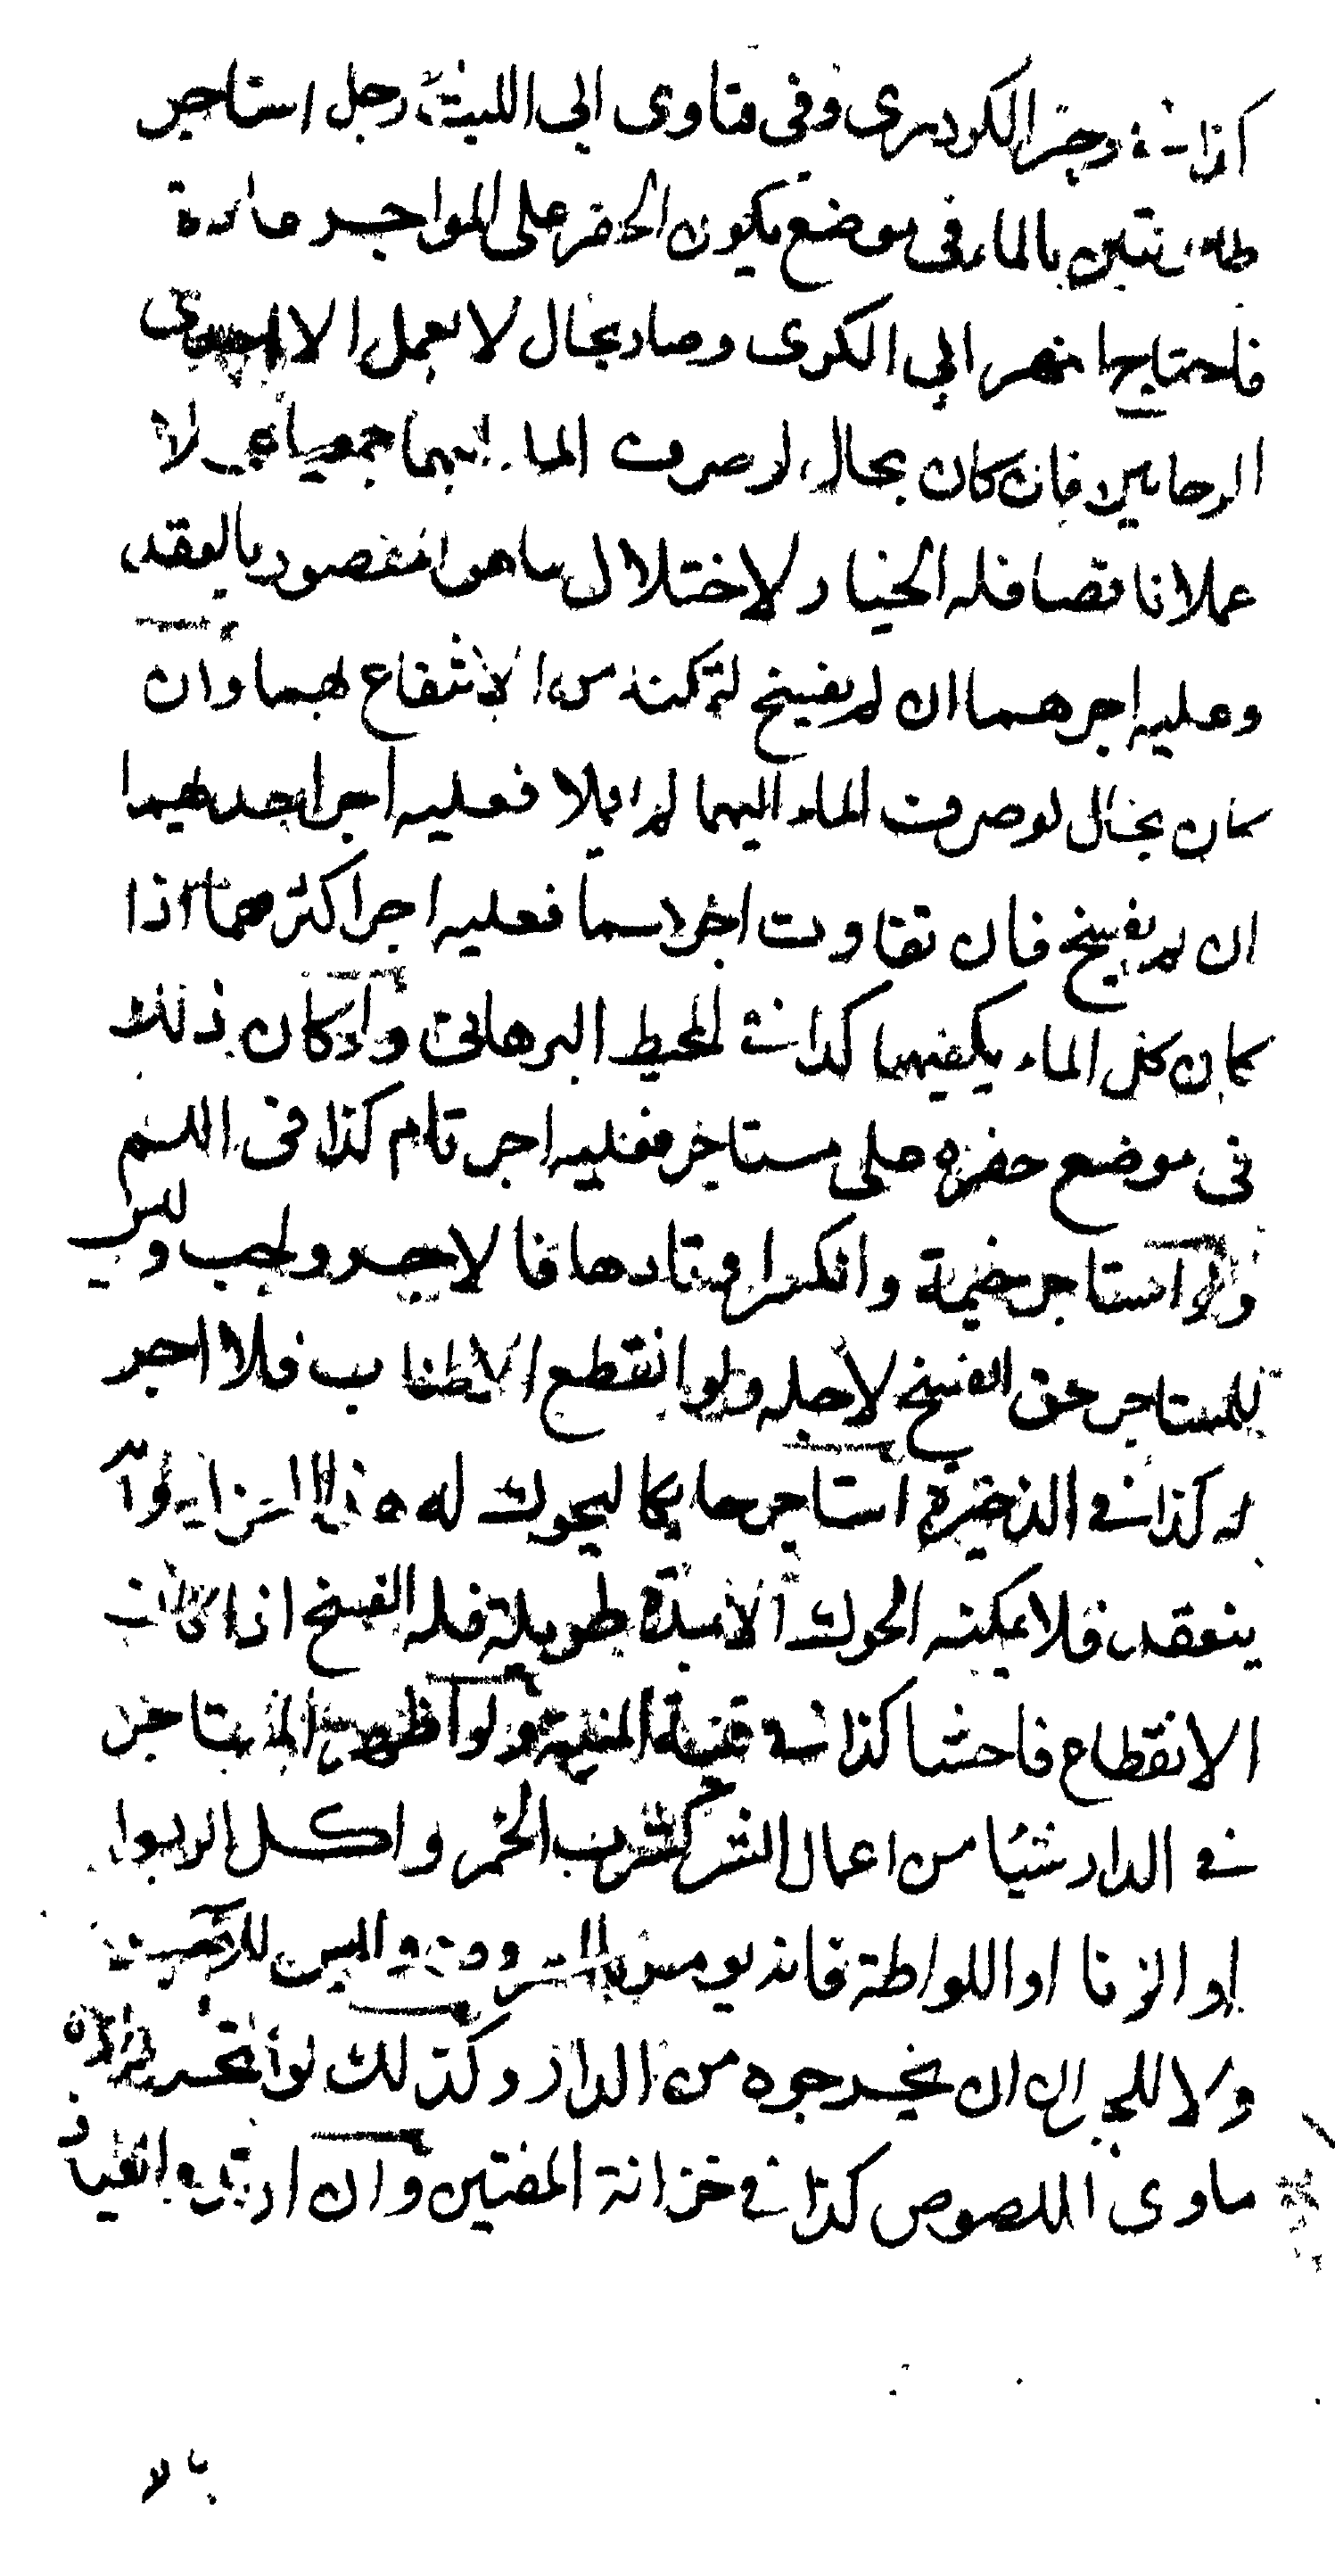 كذا في وجيز الكردري وفي فتاوى ابى الليث رجل استاجر
طاحونتين بالماء في موضع يكون الحفر على المواجر عادة
فاحتاج نهر الى الكرى وصار بحال لا يعمل الا احدى
الرحايين فان كان بحال لو صرف الماء اليهما جميعا عملا
عملا ناقصا فله الخيار لاختلال ما هو المقصود بالعقد
وعليه اجرهما ان لم يفسخ لتمكنه من الانتفاع بهما وان
كان بحال لو صرف الماء اليهما لم يعملا فعليه اجر احدهما
ان لم يفسخ فان تفاوت اجرهما فعليه اجر اكثرهما اذا
كان كل الماء يكفيهما كذا في المحيط البرهاني واذ كان ذلك
في موضع حفره على مستاجر فعليه اجر تام كذا في
ولو استاجر خيمة وانكسر اوتادها فالاجر واجب وليس
للمستاجر حق الفسخ لاجله ولو انقطع الاطناب فلا اجر
له كذا في الذخيرة استاجر حايكا ليحوك له
ينعقد فلا يمكنه الحوك الا بمدة طويلة فله الفسخ اذا كان
الانقطاع فاحشا كذا في قنية المنية ولو اظهر المستاجر
في الدار شيئا من اعمال الشر كشرب الخمر واكل الربوا
او الزنا او اللواطة فانه يومر بالمعروف وليس للآجر
ولا للجيران ان يخرجوه من الدار وكذلك لو اتخذ داره
ماوى اللصوص كذا في خزانة المفتين وان
بالا